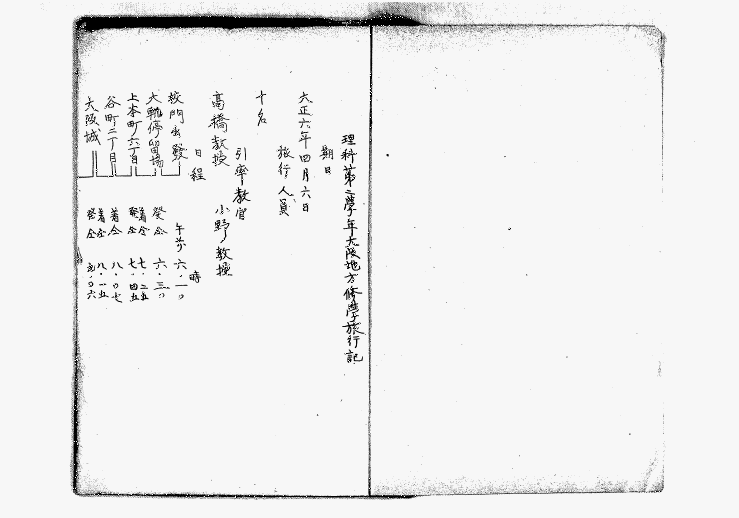 理科第二學年大阪地方修學旅行記
期日
大正六年四月六日
旅行人員
十名
引率教官
高橋教授 小野教授
日程 時
校門出發 午前 六・一〇
大軌停留場 發仝 六・三〇
上本町六丁目 着仝 七・二五
發仝 七・四五
谷町二丁目 着仝 八・〇七
大阪城 着仝 八・一五
發仝 九・〇六